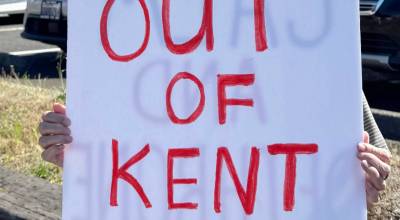 OUT
OF
KENT